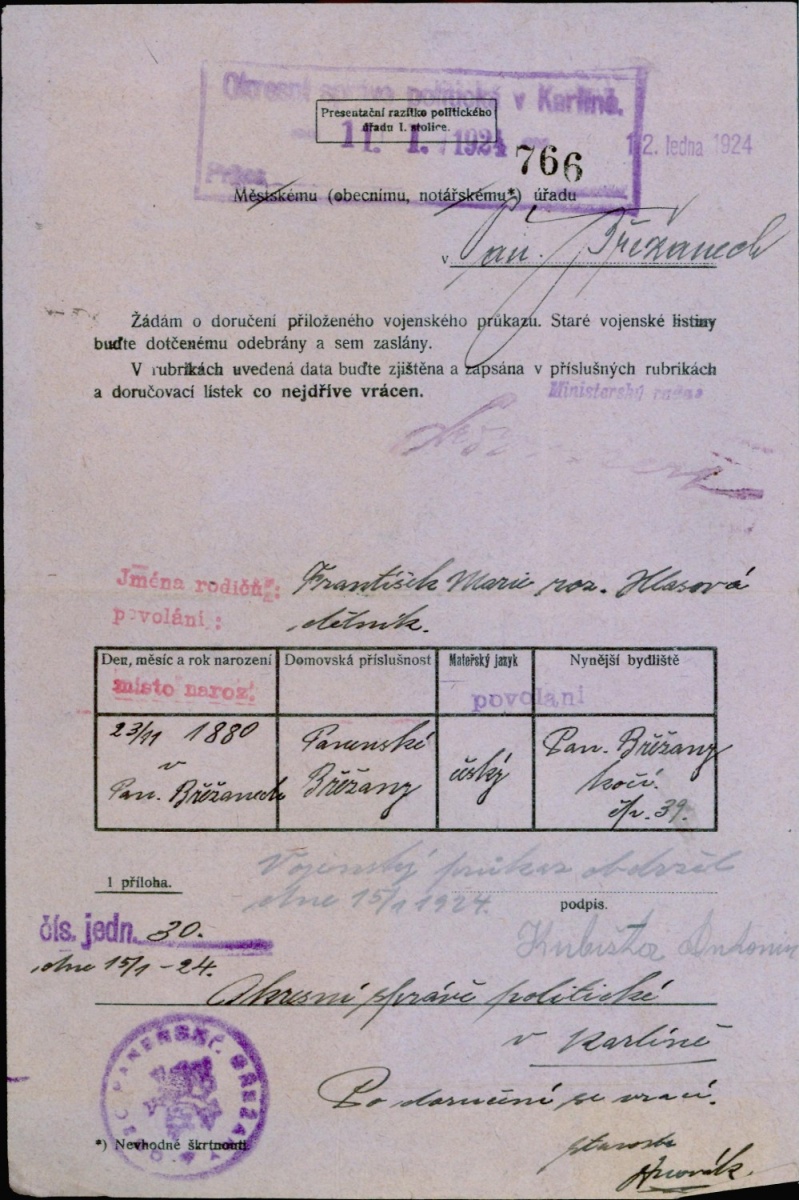 Okresní správa politická v Karlíně.
Presentační razítko politického
úřadu I. stolice.
11. I. 1924
12. ledna 1924
766
Městskému (obecnímu, notářskému*) úřadu
v Pan. Břežanech
Žádám o doručení přiloženého vojenského průkazu. Staré vojenské listiny
buďte dotčenému odebrány a sem zaslány.
V rubrikách uvedená data buďte zjištěna a zapsána v příslušných rubrikách
a doručovací lístek co nejdříve vrácen.
Ministerský rada
Jména rodičů: František Marie roz. Hlasová
povolání: dělník.
Den, měsíc a rok narození
místo naroz.
Domovská příslušnost
Mateřský jazyk
povolání
Nynější bydliště
23/11 1880
v
Pan. Břežanech
Panenské
Břežany
český
Pan. Břežany
kočí
čp. 39.
1 příloha.
Vojenský průkaz obdržel
dne 15/1 1924.
podpis.
Kubišta Antonín
čís. jedn. 30.
dne 15/1-24.
Okresní správě politické
v Karlíně
Po doručení se vrací.
OBEC PANENSKÉ BŘEŽANY
*) Nevhodné škrtnouti.
starosta